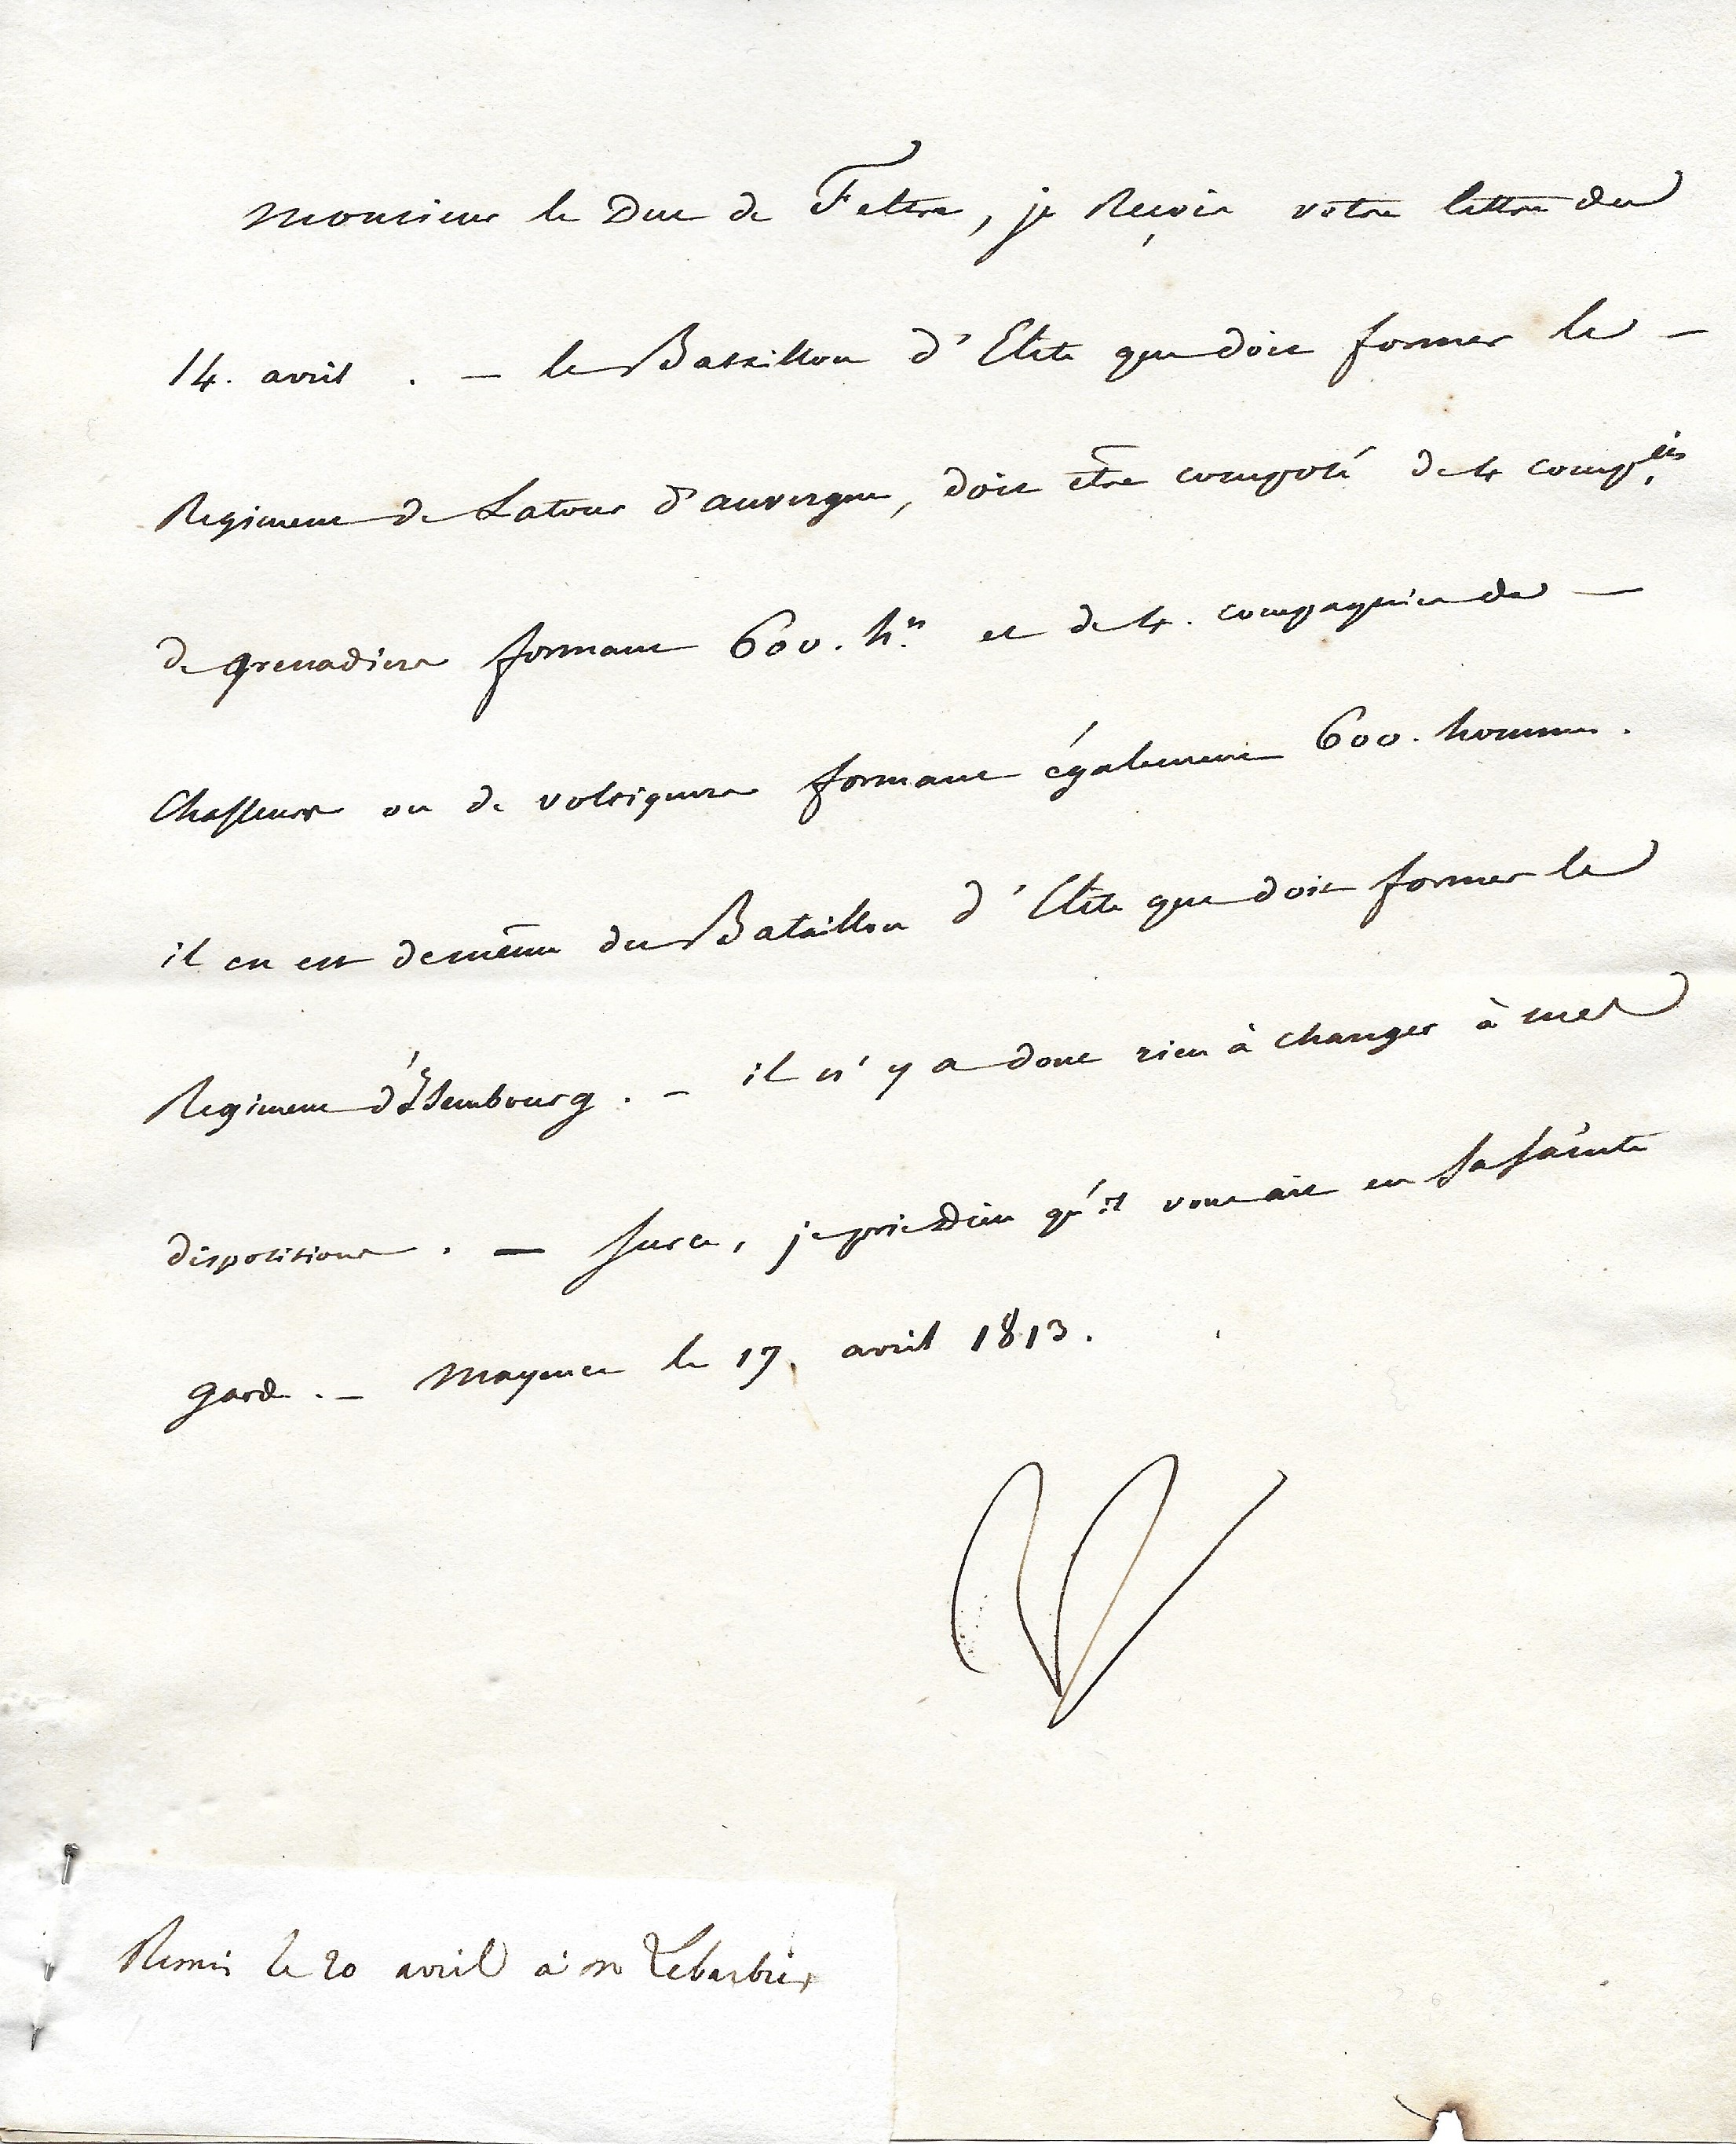 Monsieur le Duc de Feltre, je Reçois votre lettre du
14. avril . — le Bataillon d'Elite que doit former le —
Regiment de Latour d'auvergne, doit être composé de 4 comp.ies
de grenadiers formant 600. h.es et de 4. compagnies de —
Chasseurs ou de voltigeurs formant également 600. hommes.
il en est de même du Bataillon d'Elite que doit former le
Regiment d'Isembourg . — il n'y a donc rien à changer à mes
dispositions . — Sur ce, je prie Dieu qu'il vous ait en Sa Sainte
garde . — Mayence le 17, avril 1813.
Remis le 20 avril à m Lebarbier